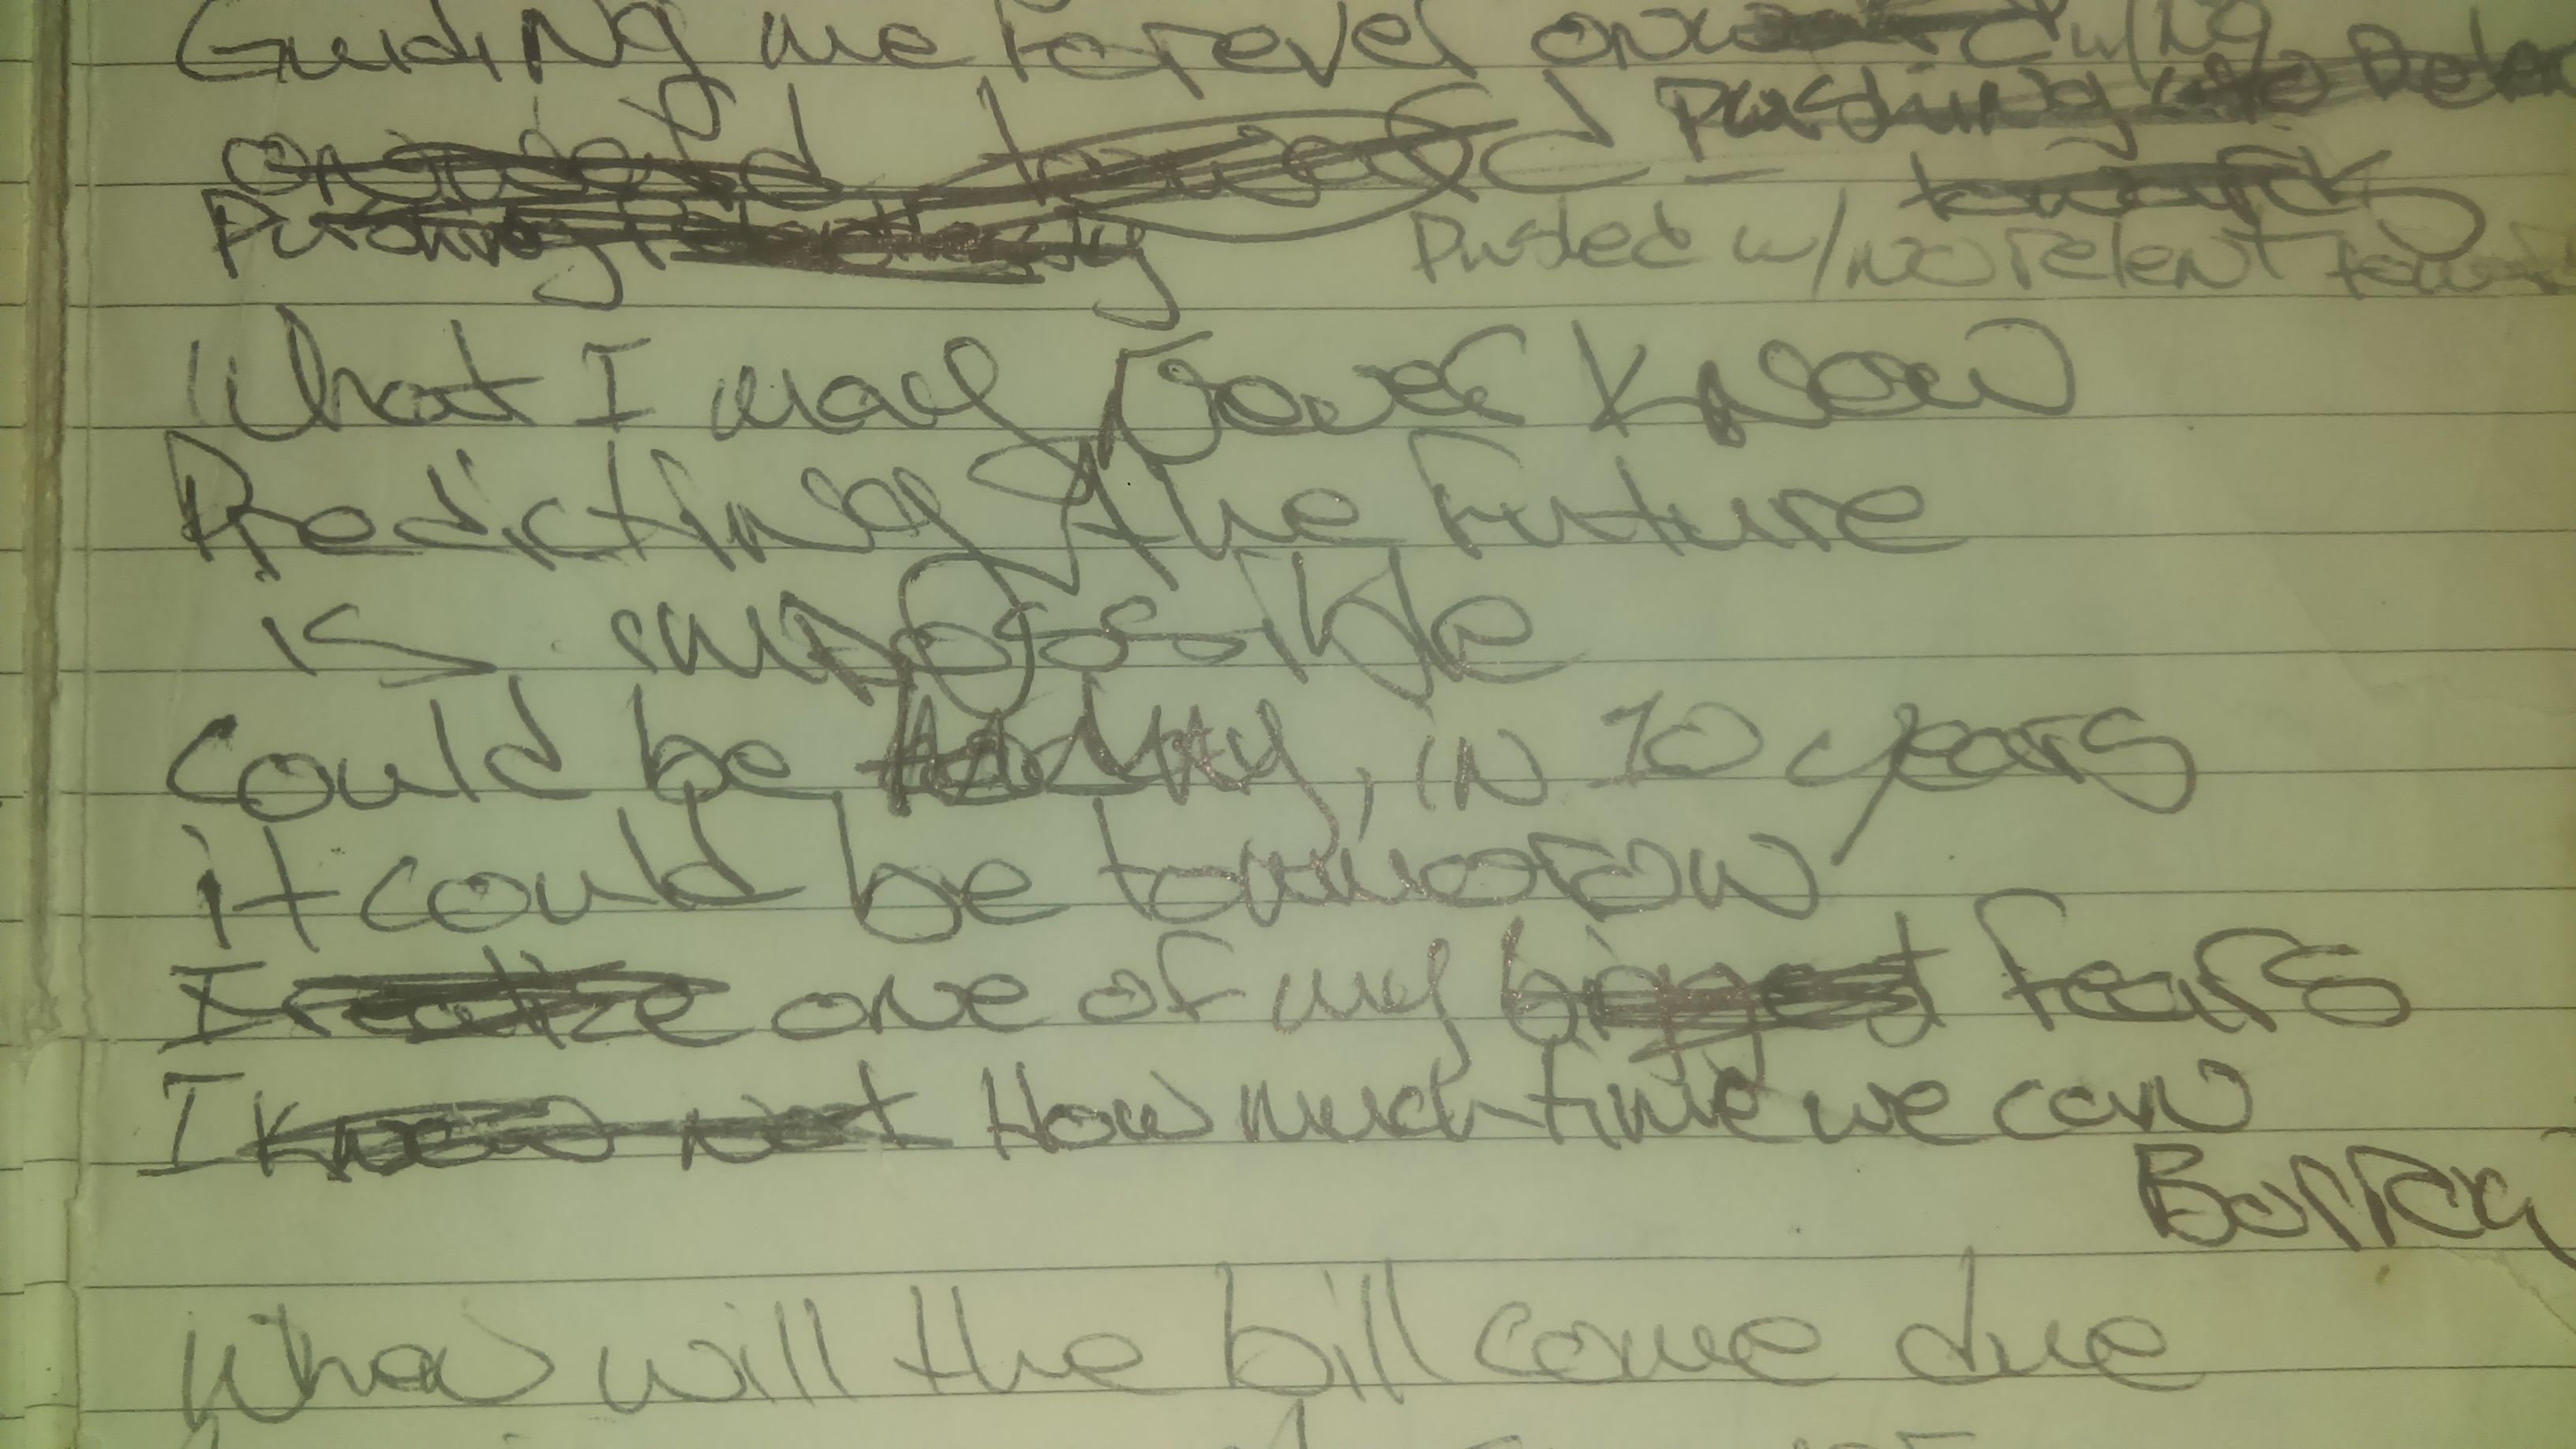 Guiding me Forever onward w/no
onward toward Pushing w/no Relen
Pushing Relentlessly towards
Pushed w/no relent toward
What I may never know
Predicting the Future
is impossible
Could be today, in 10 years
it could be tomorrow
I realize one of my biggest fears
I know not How much time we can
Borrow
When will the bill come due